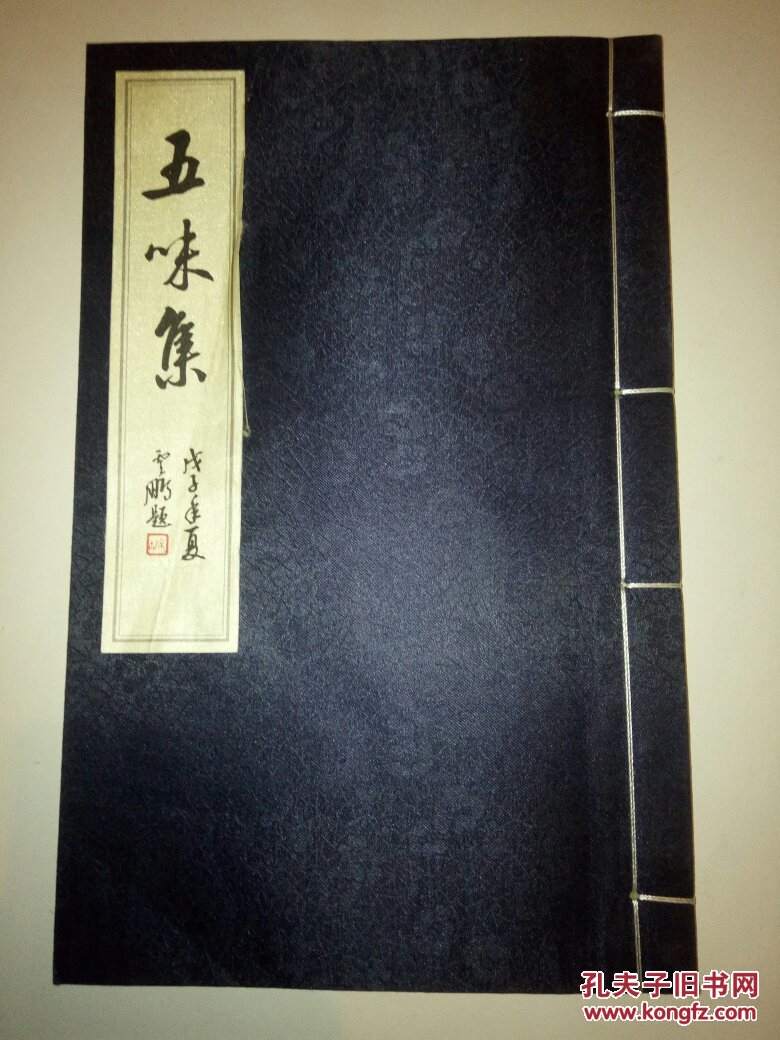 五味集
戊子年夏
云鹏题
孔夫子旧书网
www.kongfz.com